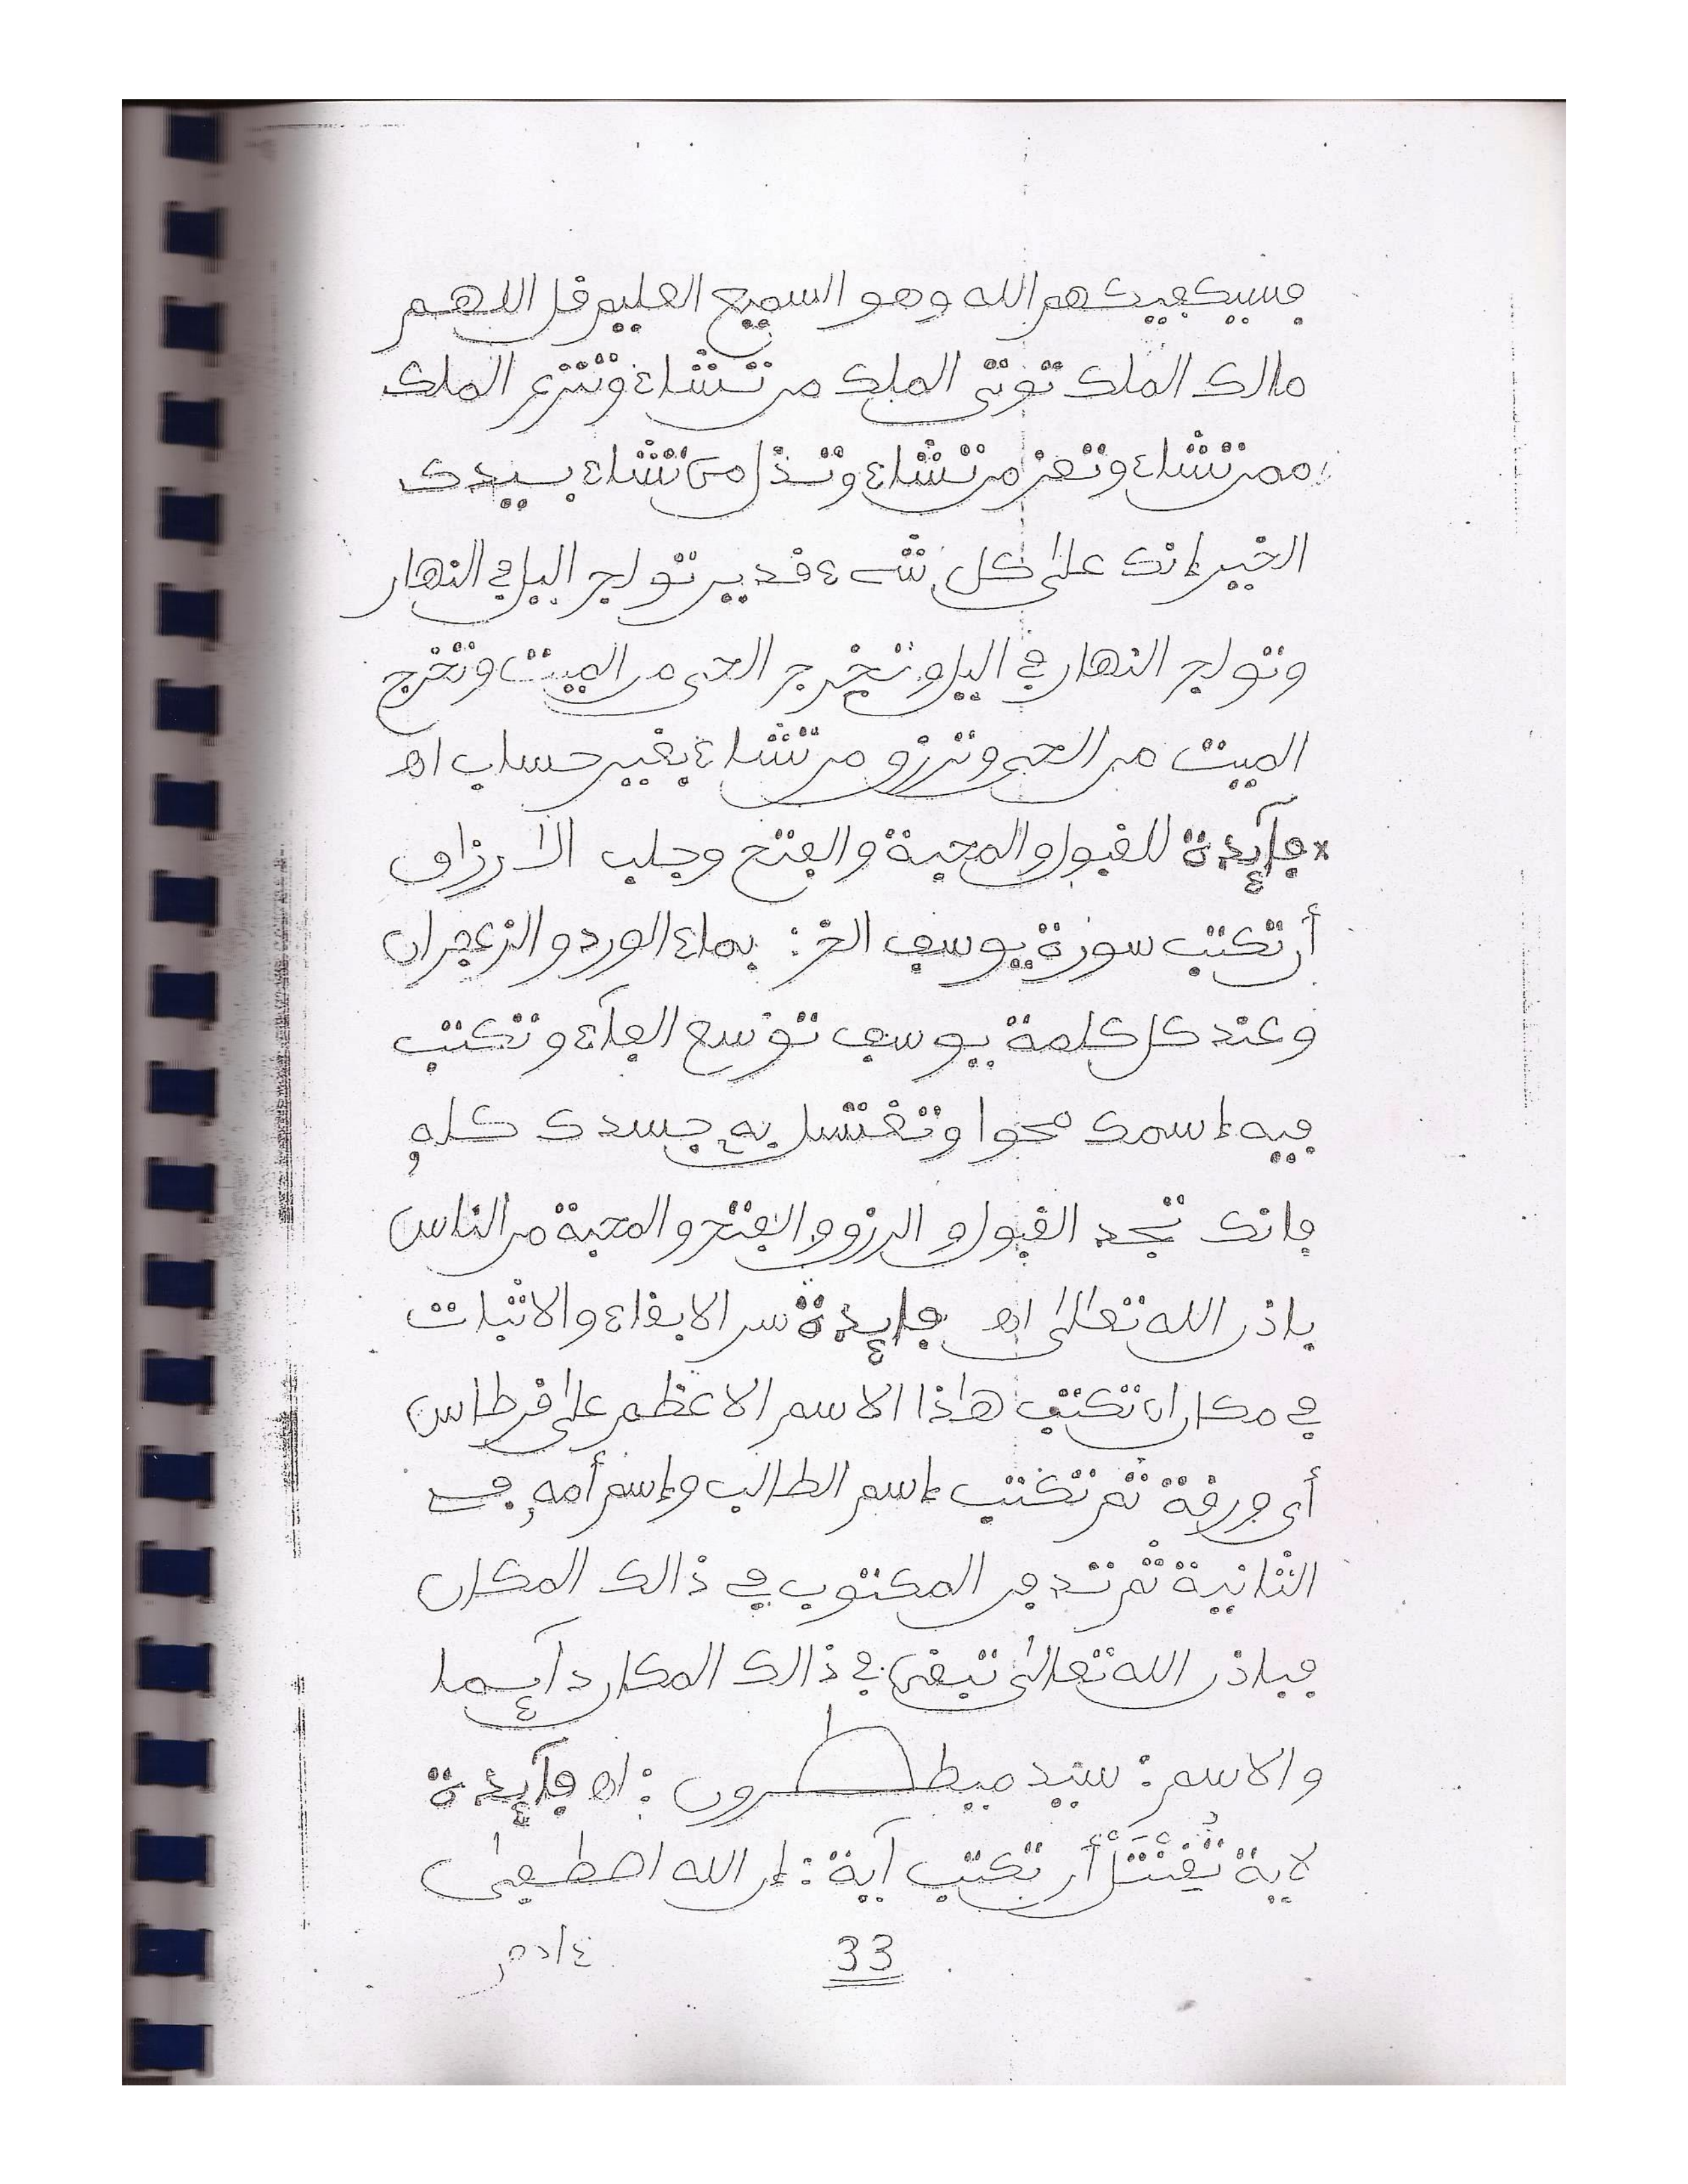 فسيكفيكهم الله وهو السميع العليم قل اللهم
مالك الملك توتى الملك من تشاء وتنزع الملك
ممن تشاء وتعز من تشاء وتذل من تشاء بيدك
الخير إنك على كل شےء قدير تولج اليل في النهار
وتولج النهار في اليل وتخرج الحي من الميت وتخرج
الميت من الحي وترزق من تشاء بغير حساب اه
× فآيدة للقبول والمحبة والفتح وجلب الارزاق
أن تكتب سورة يوسف الخ : بماء الورد والزعفران
وعند كل كلمة يوسف توسع الفآء وتكتب
فيه إسمك محوا وتغتسل به جسدك كله
فانك تجد القبول و الرزق والفتح والمحبة من الناس
باذن الله تعالى اه فايدة سر الابقاء والاثبات
في مكان ان تكتب هاذا الاسم الاعظم على قرطاس
أي ورقة ثم تكتب إسم الطالب وإسم أمه في
الثانية ثم تدفن المكتوب في ذالك المكان
فباذن الله تعالى تبقى في ذالك المكان دآيما
والاسم : سيد ميططرون : اه فآيدة
لاية تُقْتَتَلْ أن تكتب آية : إن الله اصطفى
33
ءادم